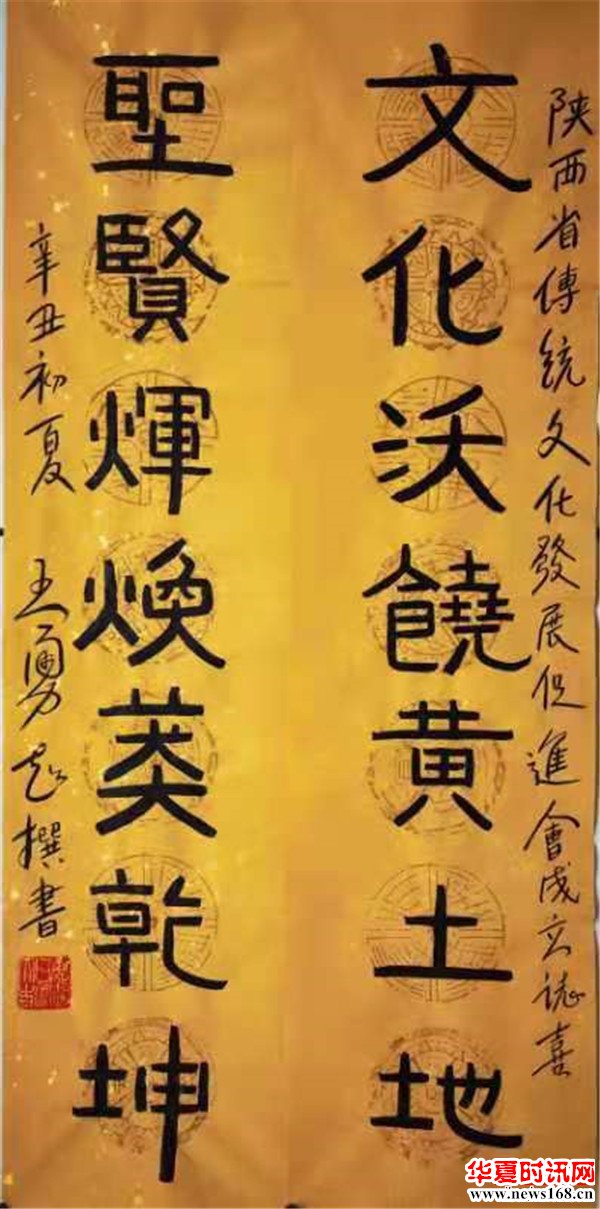 陕西省傳統文化發展促進會成立誌喜
文化沃饒黄土地
聖賢煇焕美乾坤
辛丑初夏 王勇超撰書
华夏时讯网
www.news168.cn